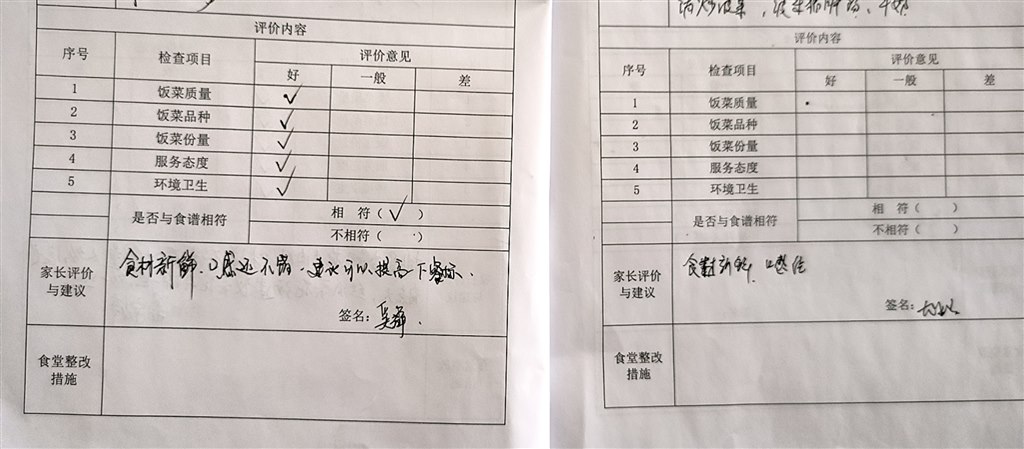 评价内容
序号 检查项目 评价意见
好 一般 差
1 饭菜质量 ✓
2 饭菜品种 ✓
3 饭菜份量 ✓
4 服务态度 ✓
5 环境卫生 ✓
是否与食谱相符 相 符（ ✓ ）
不相符（ ）
家长评价与建议
食材新鲜、口感还不错、建议可以提高下餐标、
签名：吴
食堂整改措施
评价内容
序号 检查项目 评价意见
好 一般 差
1 饭菜质量
2 饭菜品种
3 饭菜份量
4 服务态度
5 环境卫生
是否与食谱相符 相 符（ ）
不相符（ ）
家长评价与建议
食材新鲜 口感佳
签名：
食堂整改措施